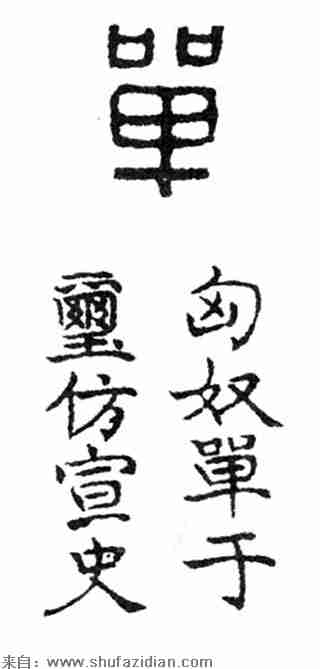 單
匈奴單于
璽仿宣史
来自：www.shufazidian.com